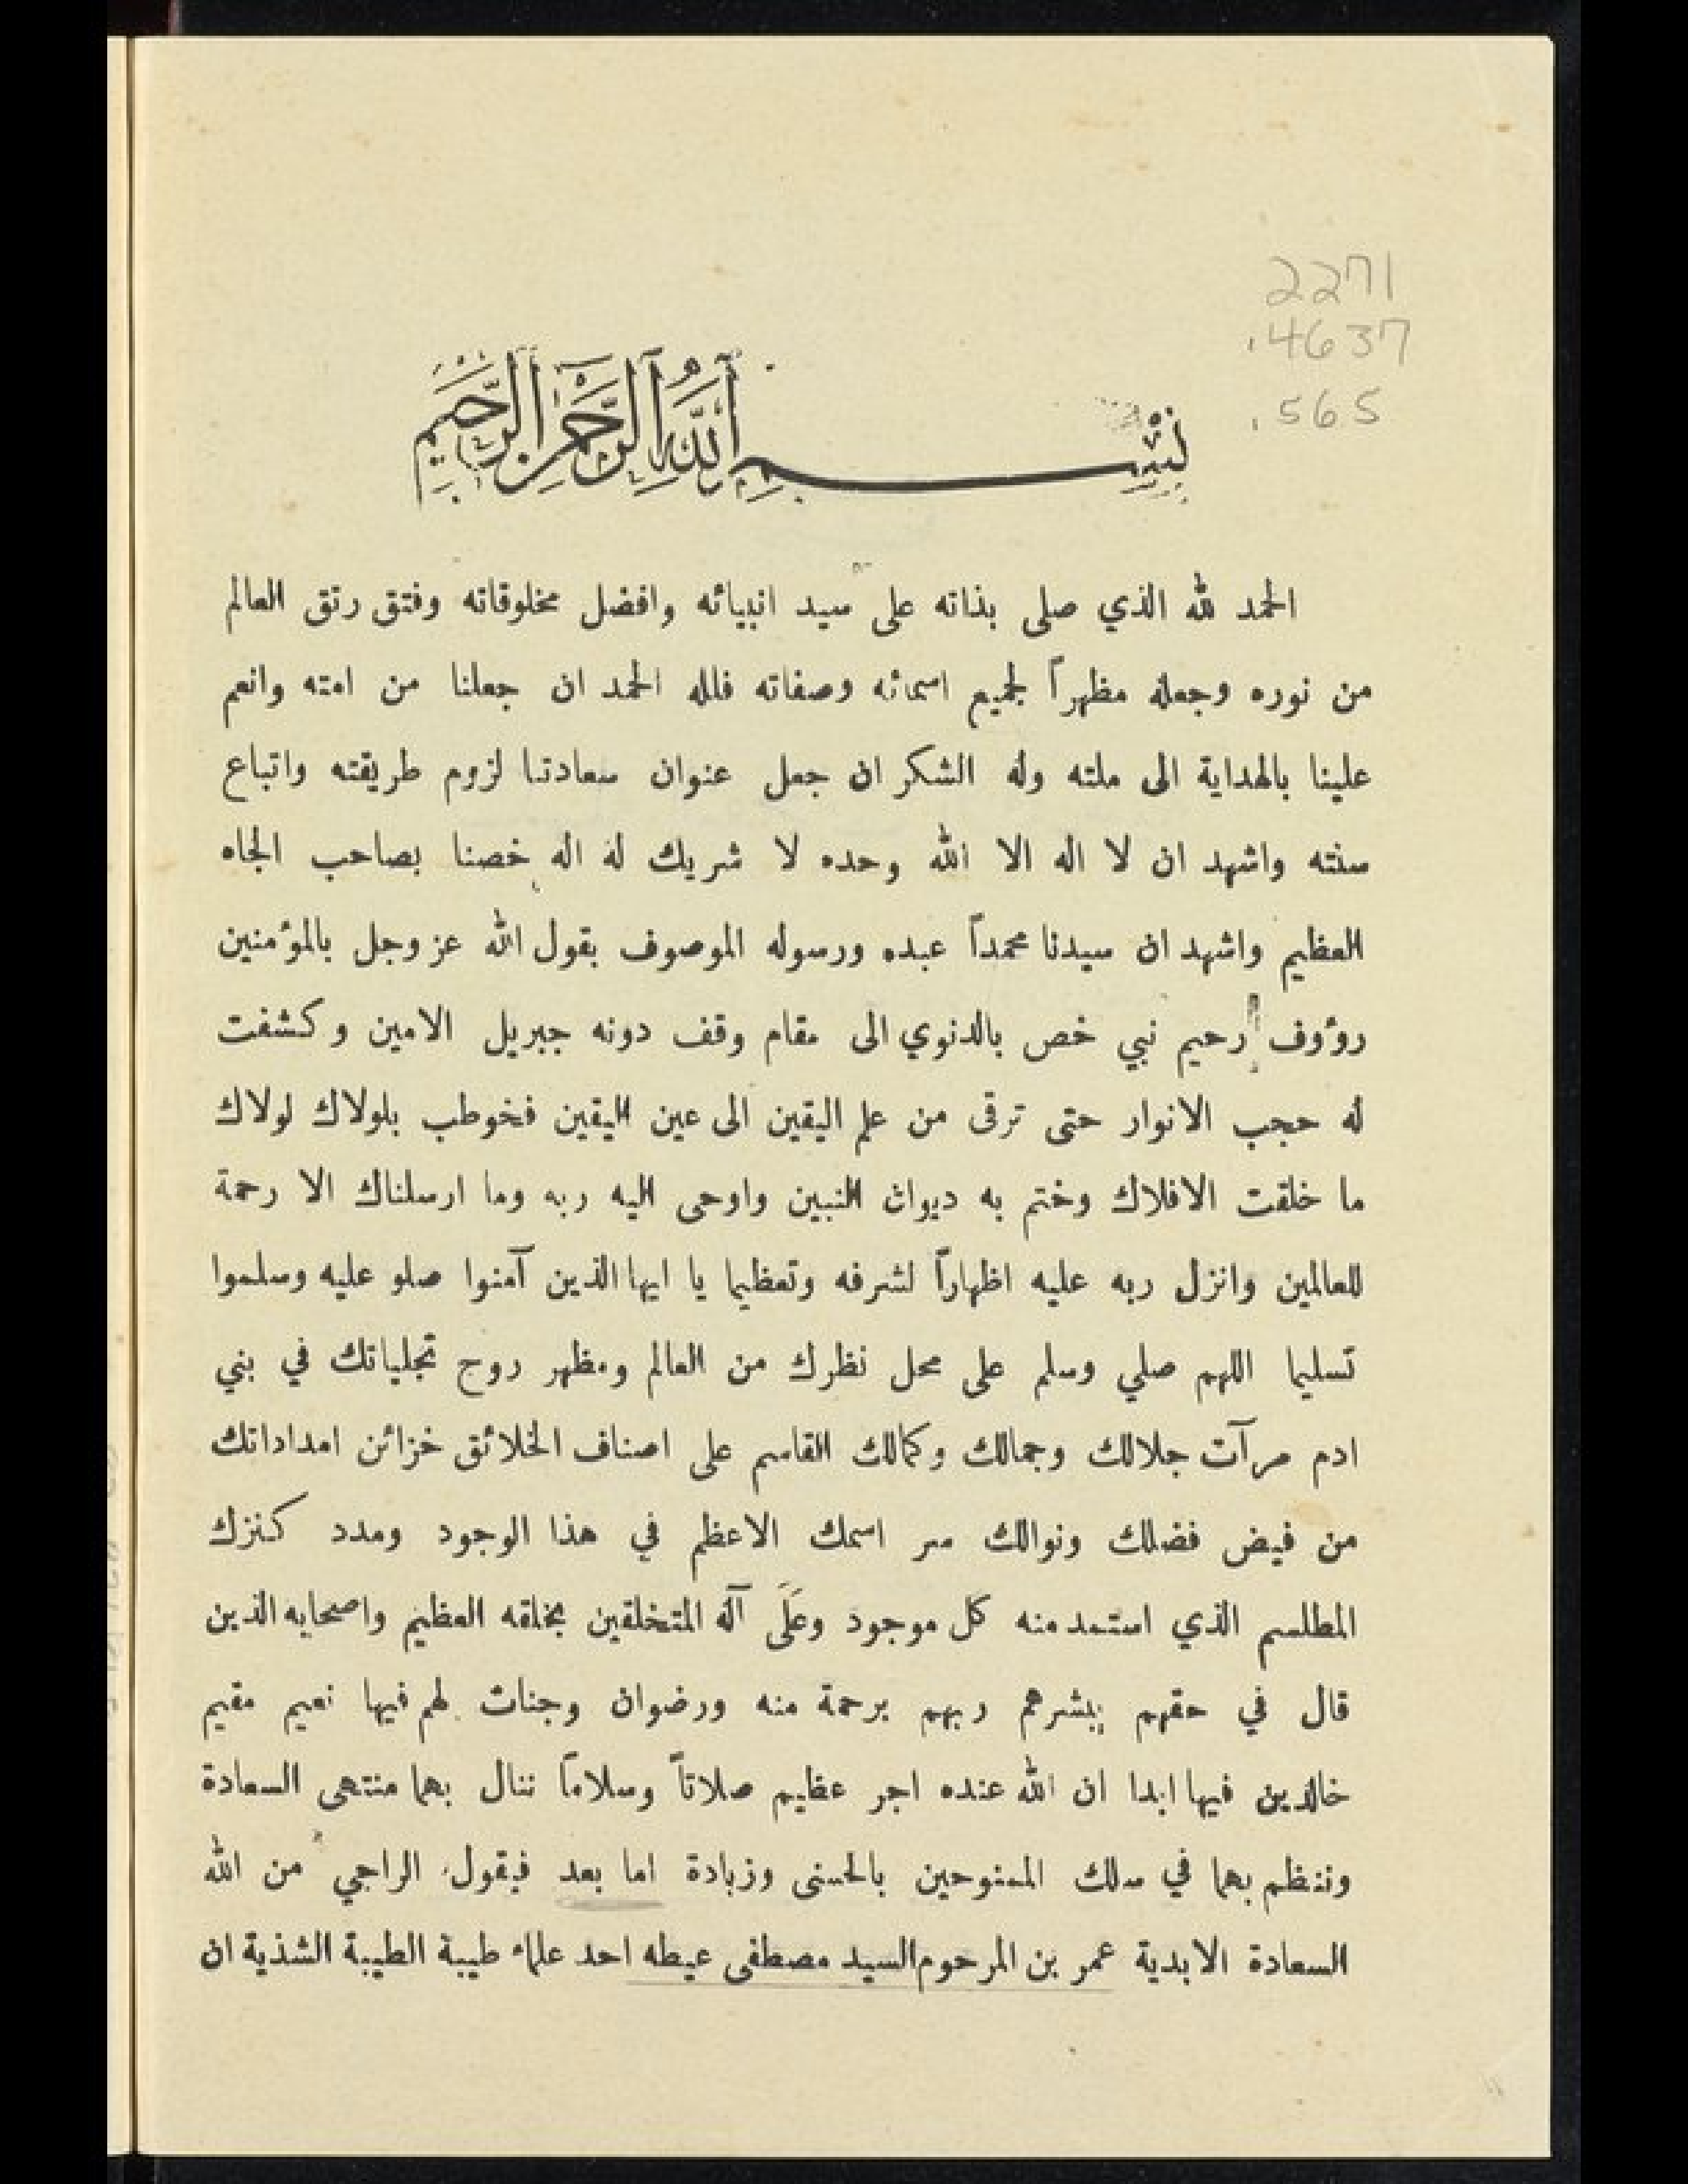 2271
.4637
.565
بِسْمِ اللهِ الرَّحْمنِ الرَّحِيمِ
الحمد لله الذي صلى بذاته على سيد انبيائه وافضل مخلوقاته وفتق رتق العالم
من نوره وجعله مظهراً لجميع اسمائه وصفاته فلله الحمد ان جعلنا من امته وانعم
علينا بالهداية الى ملته وله الشكر ان جعل عنوان سعادتنا لزوم طريقته واتباع
سنته واشهد ان لا اله الا الله وحده لا شريك له اله خصنا بصاحب الجاه
العظيم واشهد ان سيدنا محمداً عبده ورسوله الموصوف بقول الله عز وجل بالمؤمنين
رؤوف رحيم نبي خص بالدنوي الى مقام وقف دونه جبريل الامين وكشفت
له حجب الانوار حتى ترقى من علم اليقين الى عين اليقين فخوطب بلولاك لولاك
ما خلقت الافلاك وختم به ديوان النبين واوحى اليه ربه وما ارسلناك الا رحمة
للعالمين وانزل ربه عليه اظهاراً لشرفه وتعظيما يا ايها الذين آمنوا صلو عليه وسلموا
تسليما اللهم صلي وسلم على محل نظرك من العالم ومظهر روح تجلياتك في بني
ادم مرآت جلالك وجمالك وكمالك القاسم على اصناف الخلائق خزائن امداداتك
من فيض فضلك ونوالك سر اسمك الاعظم في هذا الوجود ومدد كنزك
المطلسم الذي استمد منه كل موجود وعَلَى آله المتخلقين بخلقه العظيم واصحابه الذين
قال في حقهم يبشرهم ربهم برحمة منه ورضوان وجنات لهم فيها نعيم مقيم
خالدين فيها ابدا ان الله عنده اجر عظيم صلاتاً وسلاماً ننال بهما منتهى السعادة
وننظم بهما في سلك الممنوحين بالحسنى وزيادة اما بعد فيقول الراجي من الله
السعادة الابدية عمر بن المرحوم السيد مصطفى عيطه احد علماء طيبة الطيبة الشذية ان